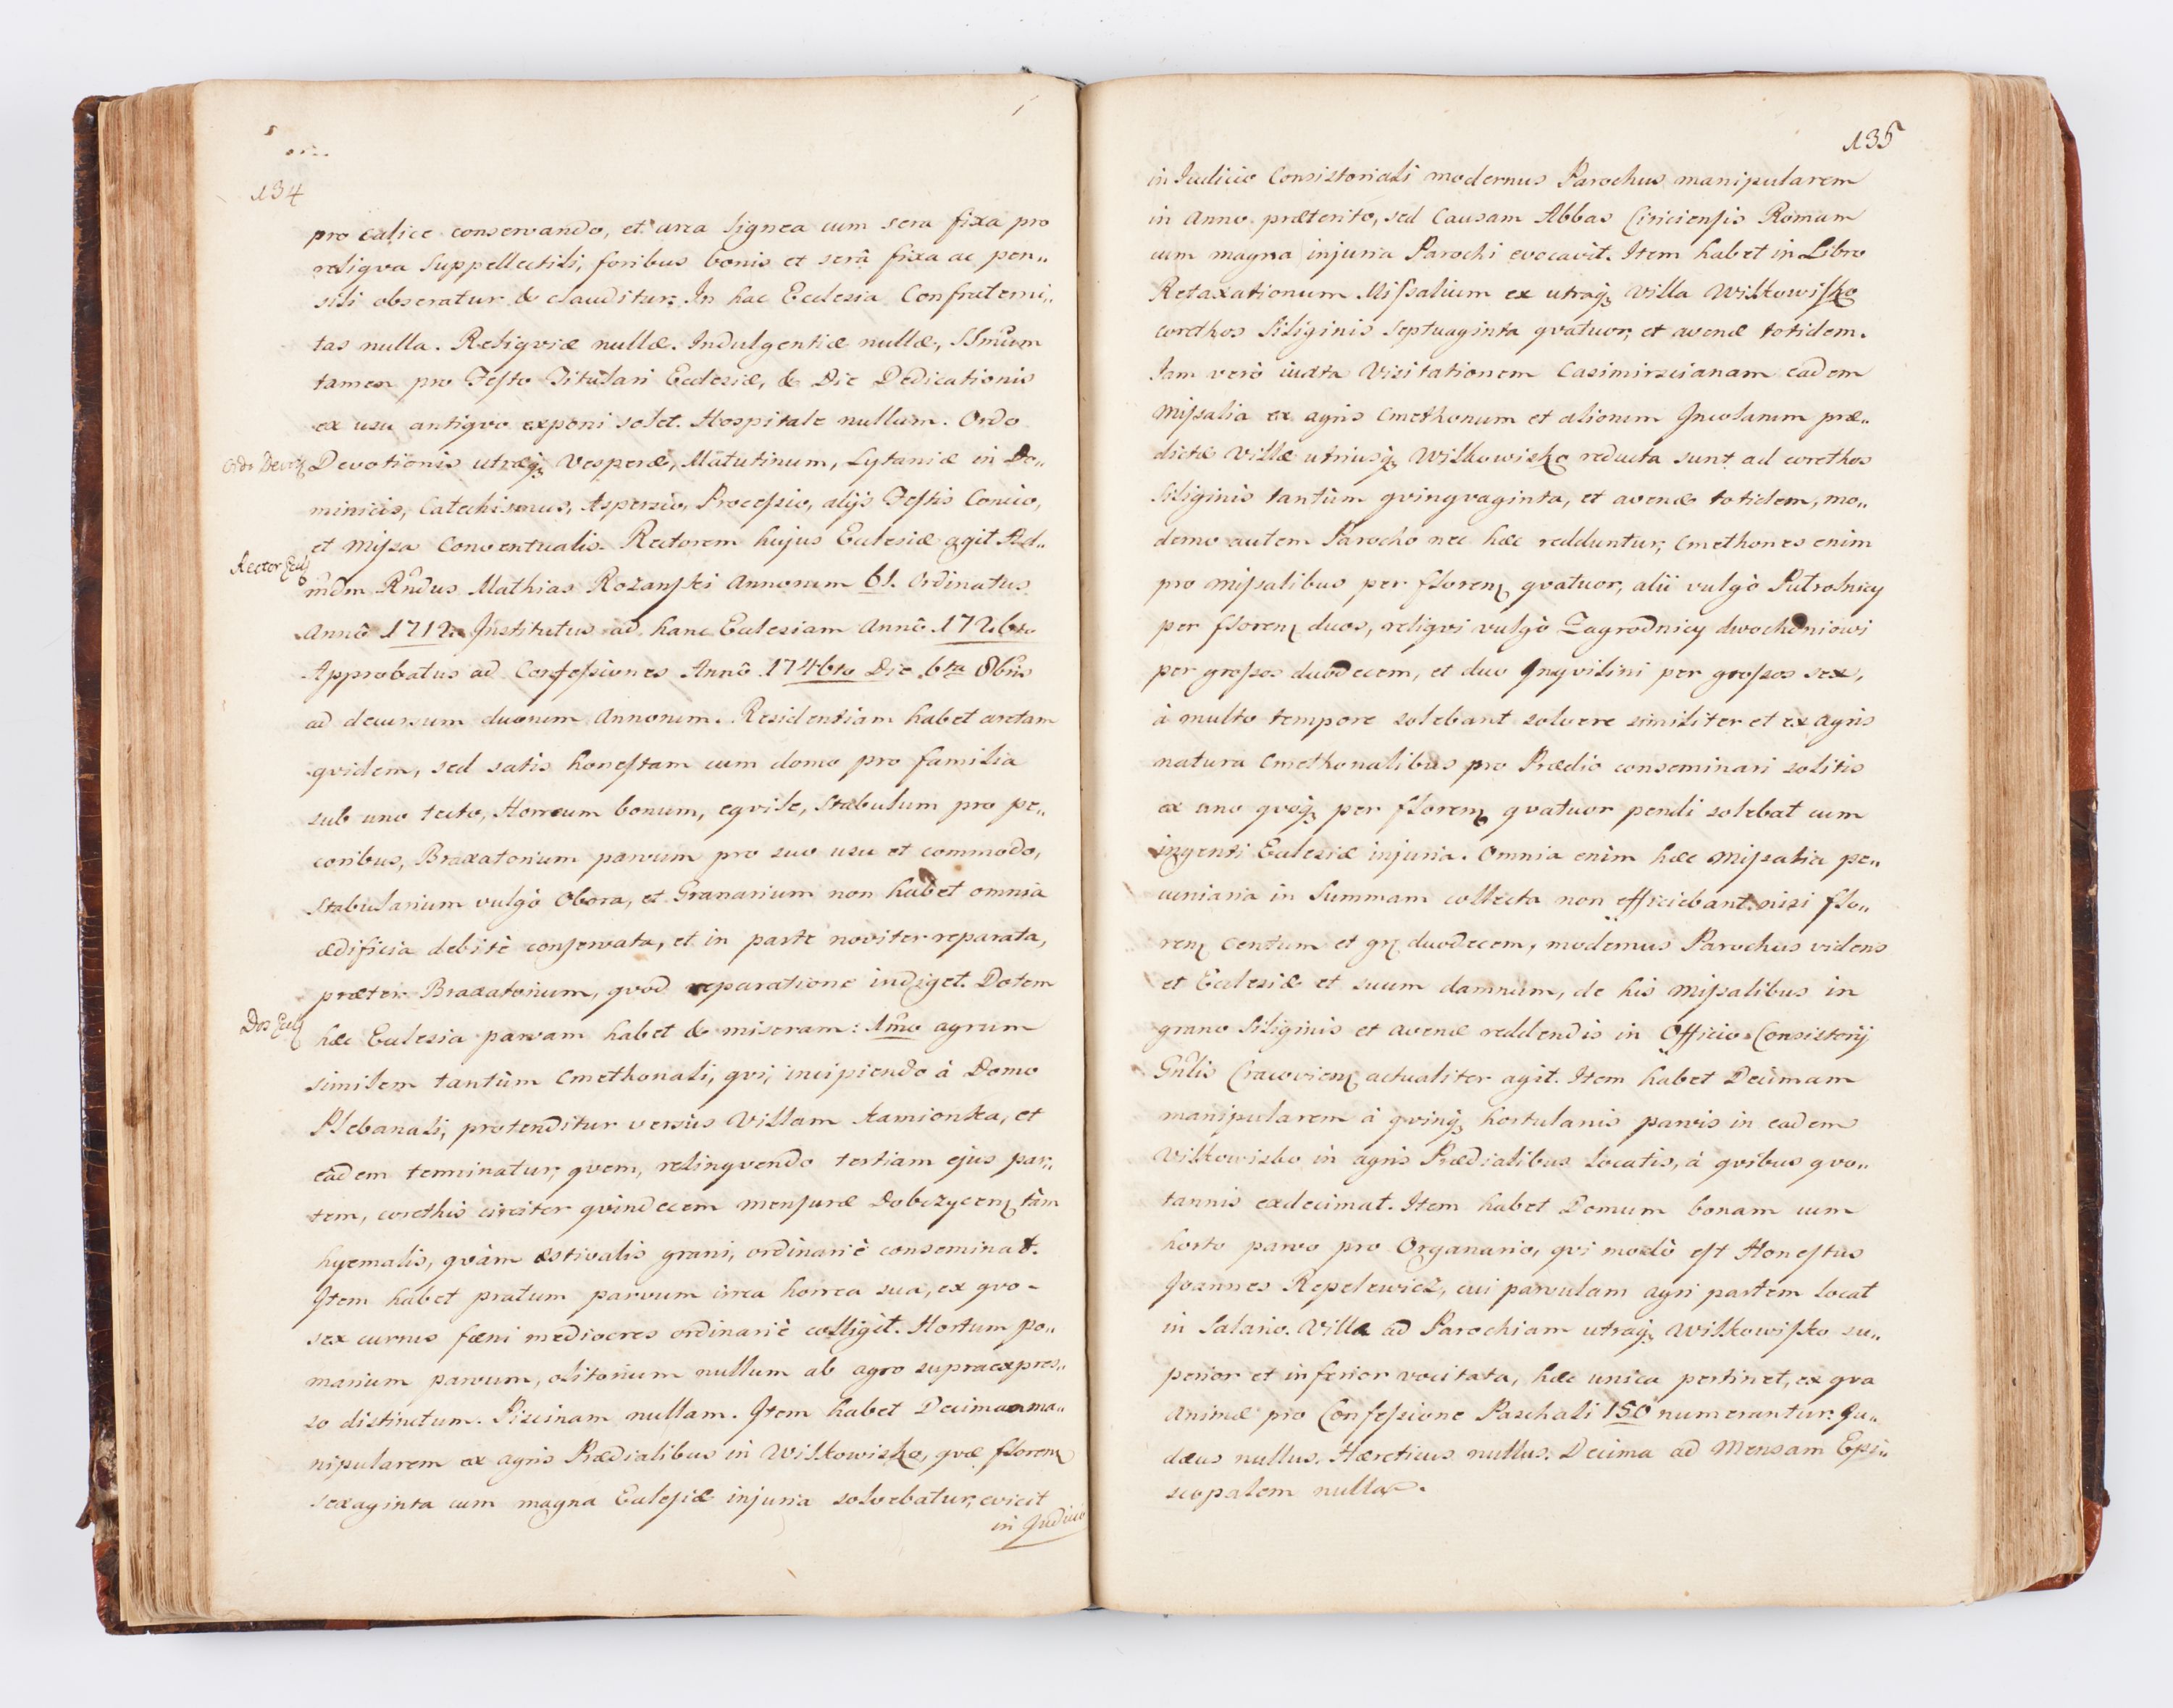 134
pro calice conservando, et arca lignea cum sera fixa pro
reliqva Suppellectili, foribus bonis et serâ fixa ac pen„
sili obseratur & clauditur. In hac Ecclesia Confraterni„
tas nulla. Reliqviæ nullæ. Indulgentiæ nullæ, SSmum
tamen pro Festo Titulari Ecclesiæ, & Die Dedicationis
ex usu antiqvo exponi solet. Hospitale nullum. Ordo
Ordo Devot:
Devotionis utræq; Vesperæ, Matutinum, Lytaniæ in Do„
minicis, Catechismus, Aspersio, Processio, alijs Festis Concio,
et Missa Conventualis. Rectorem hujus Ecclesiæ agit Ad„
Rector Eccl:
mdm Rndus Mathias Rożanski Annorum 61. Ordinatus
Annô 1712. Institutus ad hanc Ecclesiam Annô 1726to
Approbatus ad Confessiones Annô 1746to Die 6ta 8bris
ad decursum duorum Annorum. Residentiam habet arctam
qvidem, sed satis honestam cum domo pro familia
sub uno tecto, Horreum bonum, eqvile, Stabulum pro pe„
coribus, Braxatorium parvum pro suo usu et commodo,
Stabularium vulgò Obora, et Granarium non habet omnia
ædificia debitè conservata, et in parte noviter reparata,
præter Braxatorium, qvod reparatione indiget. Dotem
Dos Eccl:
hæc Ecclesia parvam habet & miseram: 1mo agrum
similem tantùm Cmethonali, qvi, incipiendo à Domo
Plebanali, protenditur versùs Villam Kamionka, et
eadem terminatur, qvem, relinqvendo tertiam ejus par„
tem, corethis circiter qvindecem mensuræ Dobczycen: tàm
hyemalis, qvàm æstivalis grani, ordinariè conseminat.
Item habet pratum parvum circa horrea sua, ex qvo-
sex currus fæni mediocres ordinariè colligit. Hortum po„
marium parvum, olitorium nullum ab agro supraexpres„
so distinctum. Piscinam nullam. Item habet Decimam ma„
nipularem ex agris Prædialibus in Wilkowisko, qvæ floren:
sexaginta cum magna Ecclesiæ injuria solvebatur, evicit
in Judicio
135
in Judicio Consistoriali modernus Parochus manipularem
in Anno præterito, sed Causam Abbas Ciriciensis Romam
cum magna injuria Parochi evocavit. Item habet in Libro
Retaxationum Missalium ex utraq; Villa Wilkowisko
corethos Siliginis Septuaginta qvatuor, et avenæ totidem.
Iam verò iuxta Visitationem Casimirscianam eadem
Missalia ex agris Cmethonum et aliorum Incolarum præ„
dictæ Villæ utriusq; Wilkowisko reducta sunt ad corethos
Siliginis tantùm qvinqvaginta, et avenæ totidem, mo„
derno autem Parocho nec hæc redduntur, Cmethones enim
pro missalibus per floren: qvatuor, alii vulgò Pułrolnicy
per floren: duos, reliqvi vulgò Zagrodnicy dwochdniowi
per grossos duodecem, et duo Inqvilini per grossos sex,
à multo tempore solebant solvere similiter et ex agris
natura Cmethonalibus pro Prædio conseminari solitis
ex uno qvoq; per floren: qvatuor pendi solebat cum
ingenti Ecclesiæ injuria. Omnia enim hæc Missalia pe„
cuniaria in Summam collecta non efficiebant nisi flo„
ren: Centum et gr: duodecem, modernus Parochus videns
et Ecclesiæ et suum damnum, de his Missalibus in
grano Siliginis et avenæ reddendis in Officio Consistorij
Gnlis Cracovien: actualiter agit. Item habet Decimam
manipularem à qvinq; hortulanis parvis in eadem
Wilkowisko in agris Prædialibus locatis, à qvibus qvo„
tannis exdecimat. Item habet Domum bonam cum
horto parvo pro Organario, qvi modò est Honestus
Joannes Repelewicz, cui parvulam agri partem locat
in Salario. Villa ad Parochiam utraq; Wilkowisko su„
perior et inferior vocitata, hæc unica pertinet, ex qva
Animæ pro Confessione Paschali 150 numerantur. Ju„
dæus nullus. Hæreticus nullus. Decima ad Mensam Epi„
scopalem nulla.